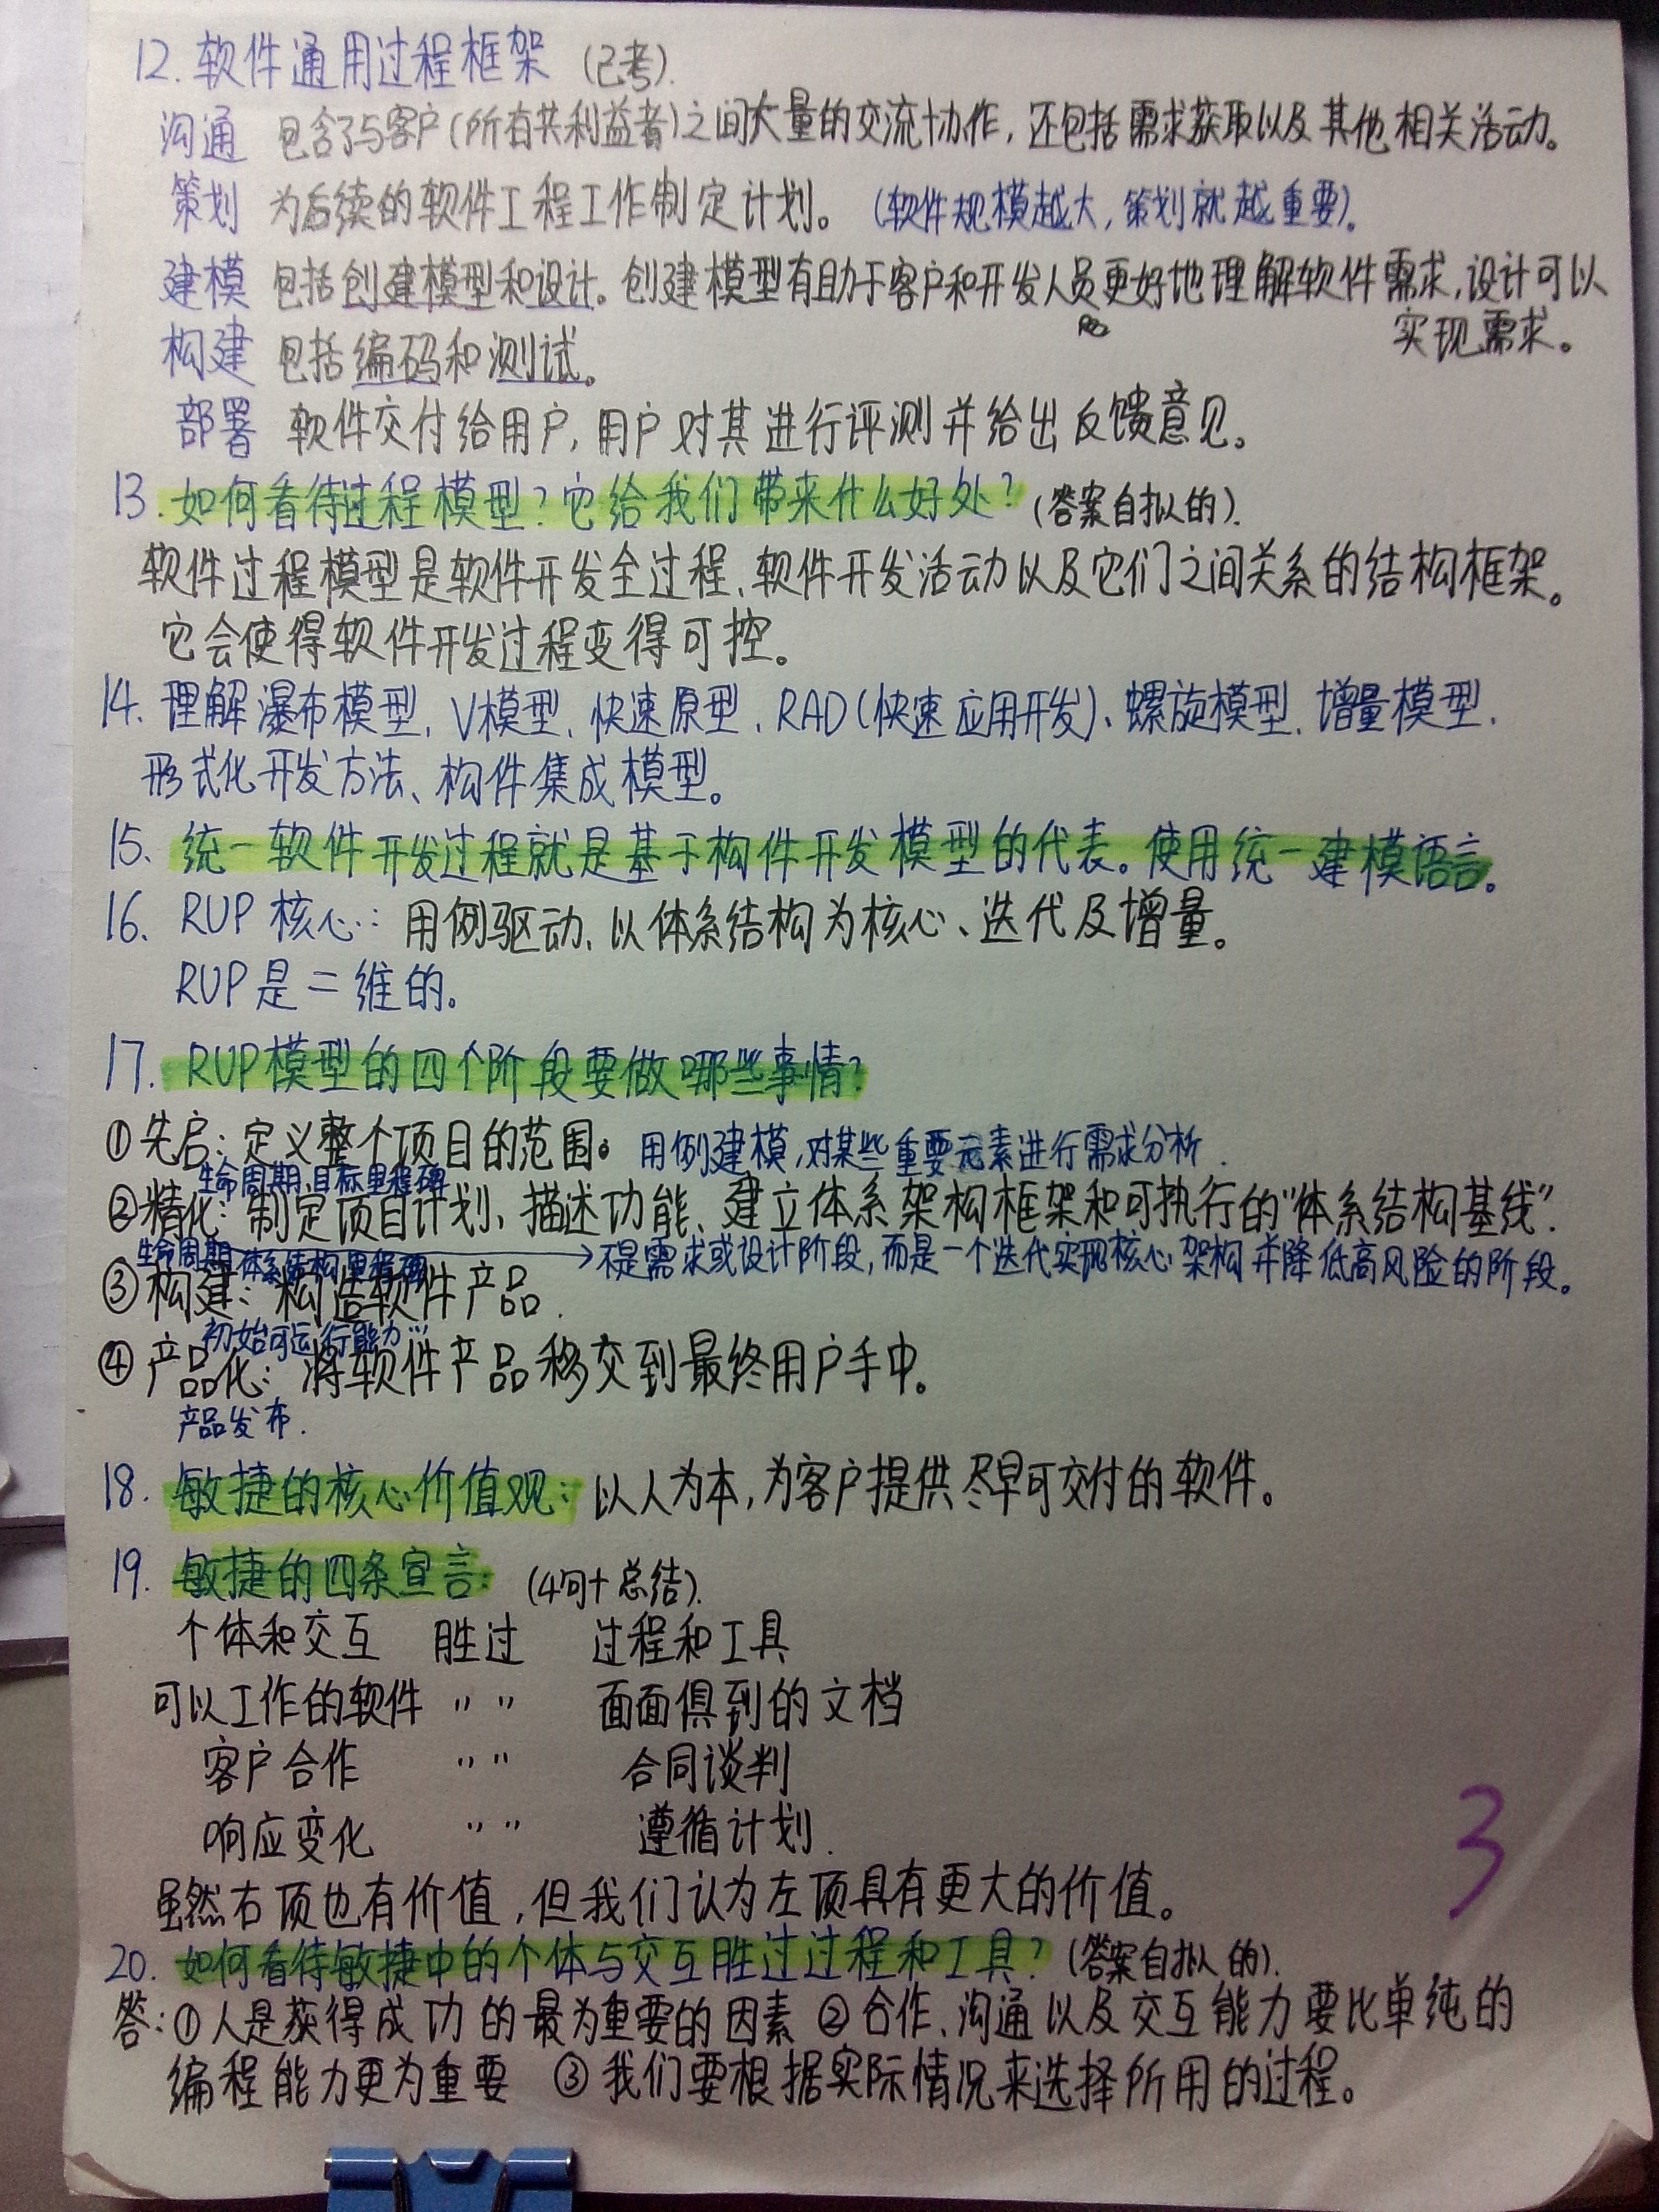 12. 软件通用过程框架 (已考).
沟通 包含了与客户(所有共利益者)之间大量的交流协作, 还包括需求获取以及其他相关活动。
策划 为后续的软件工程工作制定计划。(软件规模越大, 策划就越重要)。
建模 包括创建模型和设计。创建模型有助于客户和开发人员更好地理解软件需求, 设计可以
实现需求。
构建 包括编码和测试。
部署 软件交付给用户, 用户对其进行评测并给出反馈意见。
13. 如何看待过程模型? 它给我们带来什么好处? (答案自拟的).
软件过程模型是软件开发全过程、软件开发活动以及它们之间关系的结构框架。
它会使得软件开发过程变得可控。
14. 理解瀑布模型、V模型、快速原型、RAD(快速应用开发)、螺旋模型、增量模型、
形式化开发方法、构件集成模型。
15. 统一软件开发过程就是基于构件开发模型的代表。使用统一建模语言。
16. RUP 核心: 用例驱动、以体系结构为核心、迭代及增量。
RUP是二维的。
17. RUP模型的四个阶段要做哪些事情?
①先启: 定义整个项目的范围。用例建模, 对某些重要元素进行需求分析.
生命周期目标里程碑
②精化: 制定项目计划、描述功能、建立体系架构框架和可执行的"体系结构基线".
生命周期体系结构里程碑 → 不是需求或设计阶段, 而是一个迭代实现核心架构并降低高风险的阶段。
③构建: 构造软件产品.
初始可运行能力…
④产品化: 将软件产品移交到最终用户手中。
产品发布.
18. 敏捷的核心价值观: 以人为本, 为客户提供尽早可交付的软件。
19. 敏捷的四条宣言: (4句+总结).
个体和交互 胜过 过程和工具
可以工作的软件 〃 〃 面面俱到的文档
客户合作 〃 〃 合同谈判
响应变化 〃 〃 遵循计划.
虽然右项也有价值, 但我们认为左项具有更大的价值。
3
20. 如何看待敏捷中的个体与交互胜过过程和工具? (答案自拟的).
答: ①人是获得成功的最为重要的因素 ②合作、沟通以及交互能力要比单纯的
编程能力更为重要 ③我们要根据实际情况来选择所用的过程。